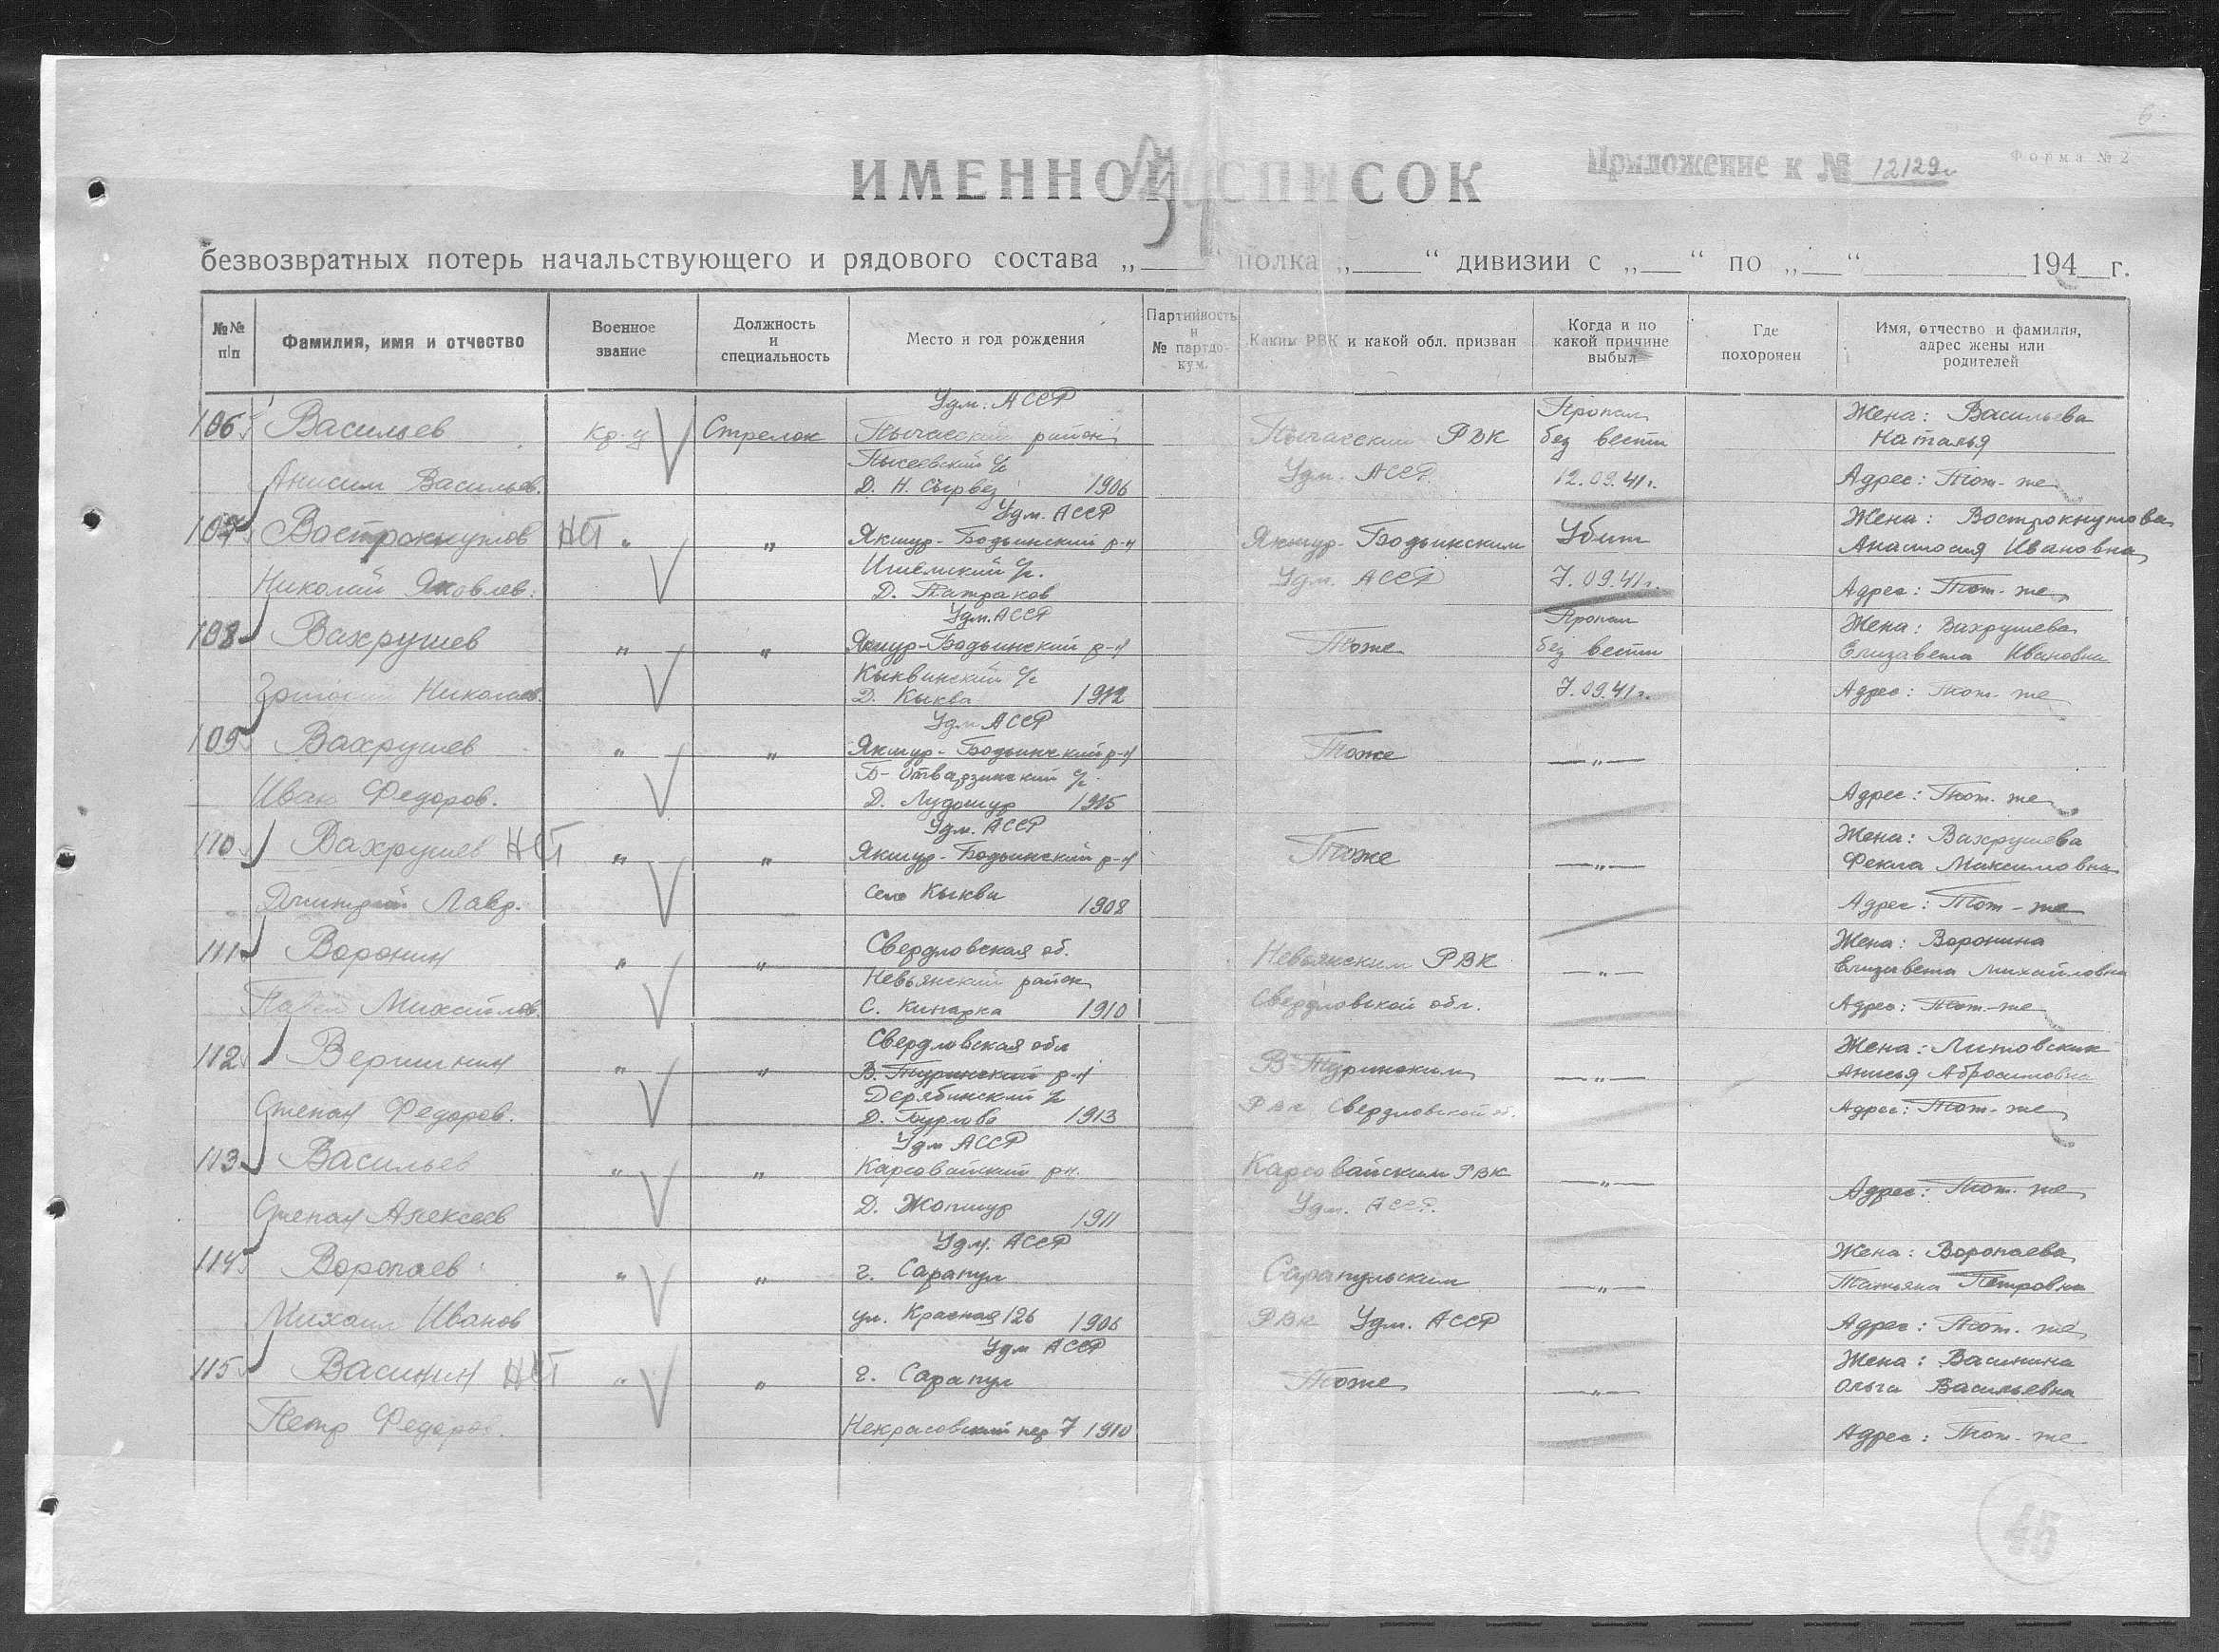 6.
Форма № 2
Приложение к № 12129с
ИМЕННОЙ СПИСОК
безвозвратных потерь начальствующего и рядового состава „ “ полка „ “ дивизии с „ “ по „ “ 194 г.
№№ п/п
Фамилия, имя и отчество
Военное звание
Должность и специальность
Место и год рождения
Партийность и № партдокум.
Каким РВК и какой обл. призван
Когда и по какой причине выбыл
Где похоронен
Имя, отчество и фамилия, адрес жены или родителей
Удм. АССР
106. Васильев кр-ц Стрелок Пычасский район Пычасским РВК Пропал без вести Жена: Васильева Наталья
Анисим Васильев. Д. Н. Сырвез 1906 Удм. АССР. 12.09.41г. Адрес: Тот-же
Удм. АССР
107. Вострокнутов НСТ " " Якшур-Бодьинский р-н Якшур-Бодьинским Убит Жена: Вострокнутова Анастасия Ивановна
Николай Яковлев. Д. Патраков Удм. АССР 7.09.41г. Адрес: Тот-же
Удм. АССР
108 Вахрушев " " Якшур-Бодьинский р-н Тоже Пропал без вести Жена: Вахрушева Елизавета Ивановна
Николаев. Кыквинский с/с
Д. Кыква 1912 7.09.41г. Адрес: Тот-же
Удм. АССР
109. Вахрушев " " Якшур-Бодьинский р-н Тоже —"—
Иван Федоров. Д. Лудошур 1915 Адрес: Тот-же
Удм. АССР
110. Вахрушев НСТ " " Якшур-Бодьинский р-н Тоже —"— Жена: Вахрушева Фекла Максимовна
Дмитрий Лавр. село Кыква 1908 Адрес: Тот-же
111. Воронин " " Свердловская об. Невьянским РВК —"— Жена: Воронина Елизавета Михайловна
Невьянский район
Михайлов. С. Кунарка 1910 Свердловской обл. Адрес: Тот-же
Свердловская обл
112. Вершинин " " В. Туринский р-н В-Туринским —"— Жена: Литовских Анисья Абросимовна
Дерябинский с/с
Степан Федоров. 1913 РВК Свердловской об. Адрес: Тот-же
Удм АССР
113. Васильев " " Карсовайский рн. Карсовайским РВК —"—
Степан Алексеев Д. Жопшур 1911 Удм. АССР. Адрес: Тот-же
Удм. АССР
114. Воропаев " " г. Сарапул Сарапульским —"— Жена: Воропаева Татьяна Петровна
Михаил Иванов ул. Красная 126 1906 РВК Удм. АССР Адрес: Тот-же
Удм АССР
115. Васинин НСТ " " г. Сарапул Тоже —"— Жена: Васинина Ольга Васильевна
Петр Федоров. Некрасовский пер 7 1910 Адрес: Тот-же
45